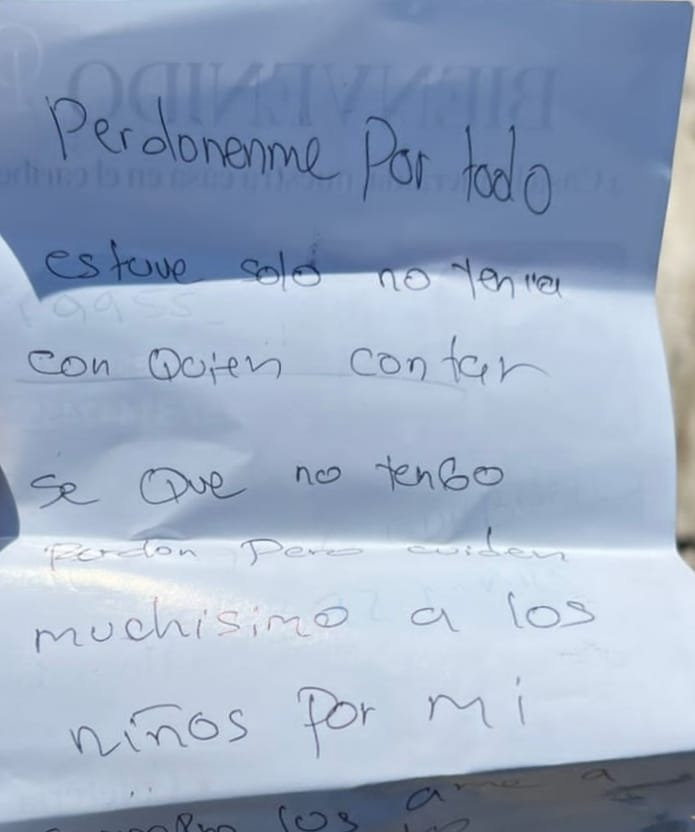 BIENVENIDO
Perdonenme Por todo
estuve solo no tenia
con Quien contar
se Que no tengo
perdon Pero cuiden
muchisimo a los
niños Por mi
los ame a